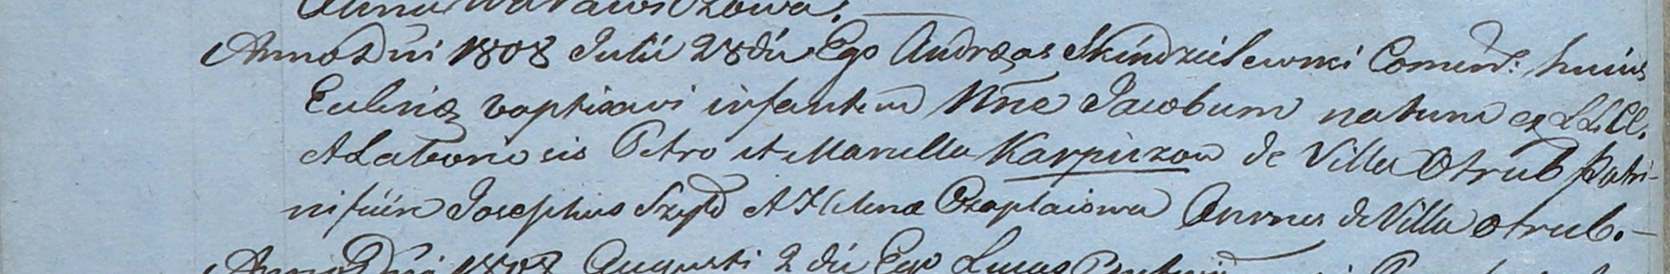 Anno Dni 1808 Julii 28 die Ego Andreas Skindzielewski Comend: huius
Eccliae baptisavi infantem Nne Jacobum natum ex LL. CC.
A Laboriosis Petro et Marcella Karpiczow de Villa Otrub Patri-
ni fuere Josephus Szyło et Helena Czaplaiowa Omnes de Villa Otrub.
Anno Dni 1808 Augusti 2 die Ego Lucas